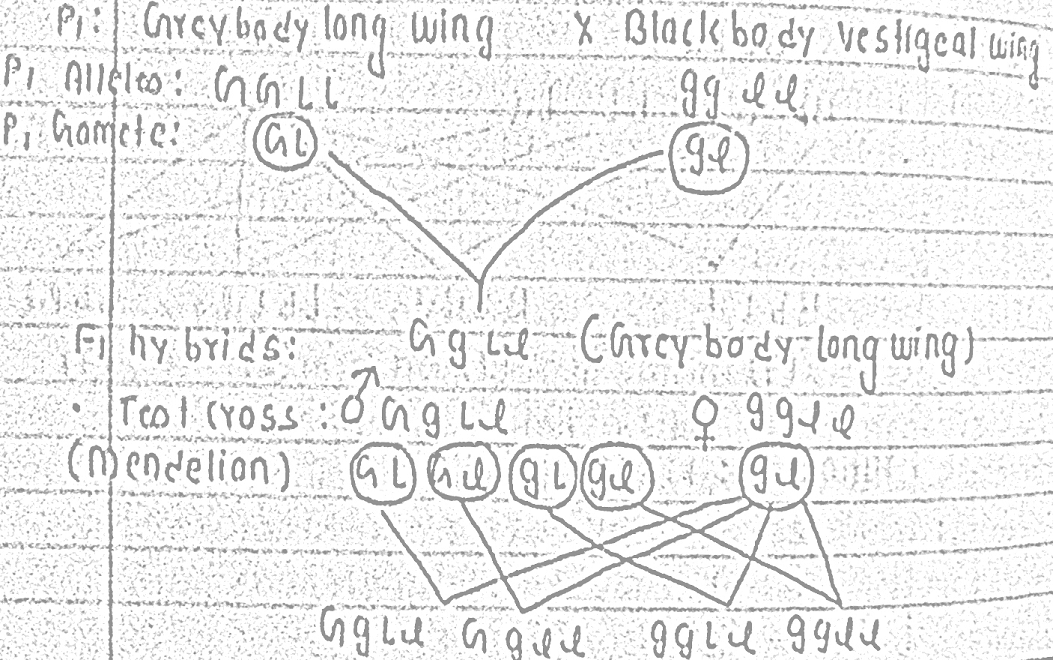 P1: Grey body long wing X Black body vestigeal wing
P1 Alleles: GGLL ggll
P1 Gamete: GL gl
F1 hybrids: GgLl (Grey body long wing)
• Test cross: ♂ GgLl ♀ ggll
(Mendelian) GL Gl gL gl gl
GgLl Ggll ggLl ggll